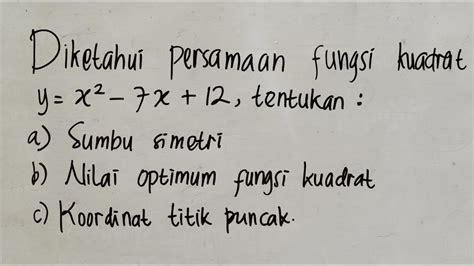 Diketahui persamaan fungsi kuadrat
y = x² - 7x + 12, tentukan :
a) Sumbu simetri
b) Nilai optimum fungsi kuadrat
c) Koordinat titik puncak.